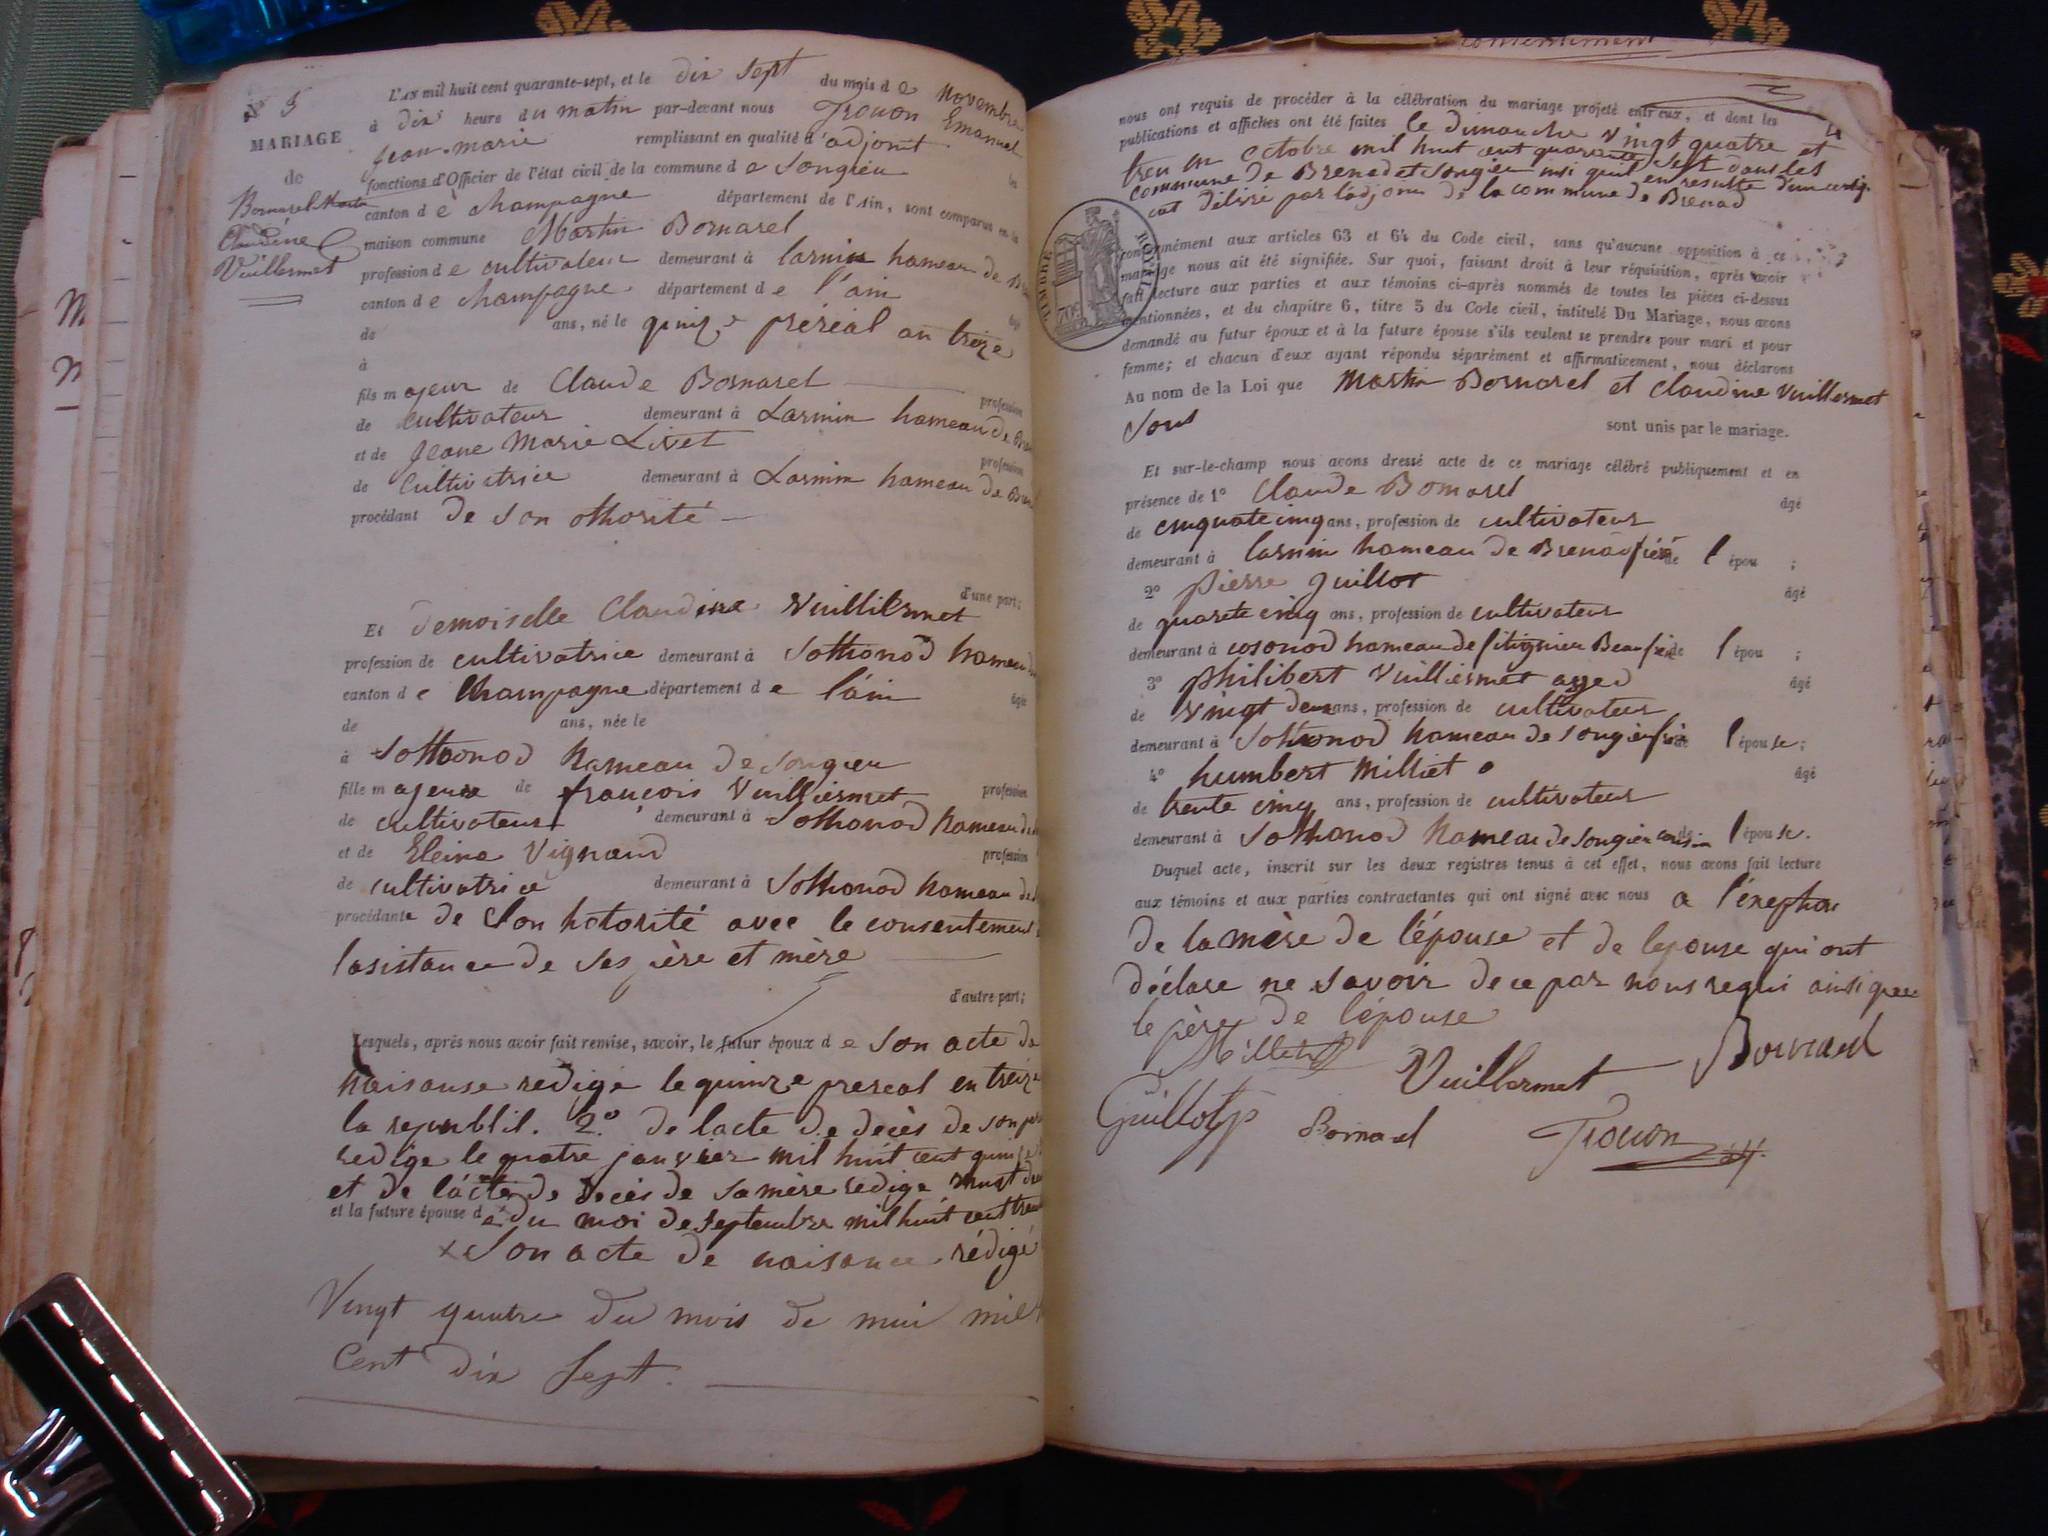 N° 5
MARIAGE
de
Bornarel Martin
Claudine
Vuillermet
L'AN mil huit cent quarante-sept, et le dix sept du mois de novembre
à dix heure du matin par-devant nous Trouon Emanuel
jean-marie remplissant en qualité d'adjoint
fonctions d'Officier de l'état civil de la commune de Songieu
canton de champagne département de l'Ain, sont comparus en la
maison commune Martin Bornarel
profession de cultivateur demeurant à larnin hameau de
canton de champagne département de l'ain
de ans, né le quinze preréal an treize
à
fils majeur de Claude Bornarel profession
de cultivateur demeurant à Larnin hameau de
et de Jeane Marie Livet profession
de cultivatrice demeurant à Larnin hameau de
procédant de son othorité
d'une part;
Et demoiselle Claudine Vuilliermet
profession de cultivatrice demeurant à Sothonod hameau
canton de Champagne département de l'ain âgée
de ans, née le
à Sothonod hameau de songieu
fille majeure de françois Vuilliermet profession
de cultivateur demeurant à Sothonod hameau de
et de Eleine Vignand profession
de cultivatrice demeurant à Sothonod hameau de
procédante de Son hotorité avec le consentement
lasistance de ses père et mère
d'autre part;
Lesquels, après nous avoir fait remise, savoir, le futur époux de son acte de
naisanse redigé le quinze prereal en treize
la republil. 2° de lacte de decès de son père
redigé le quatre janvier mil huit cent quinze
et de lacte de decès de sa mère redigé
et la future épouse de x du moi de septembre mil huit cent
x Son acte de naisance rédigé
Vingt quatre du mois de mai mil
Cent dix Sept.
consentement
nous ont requis de procéder à la célébration du mariage projeté entr'eux, et dont les
publications et affiches ont été faites le dimanche vingt quatre et
tren un octobre mil huit cent quarante sept dans les
commune de Brenad et songieu insi quil en resulte d'un certifi
cat délivré par l'adjoint de la commune de Brenad
TIMBRE ROYAL
conformément aux articles 63 et 64 du Code civil, sans qu'aucune opposition à ce
mariage nous ait été signifiée. Sur quoi, faisant droit à leur réquisition, après avoir
fait lecture aux parties et aux témoins ci-après nommés de toutes les pièces ci-dessus
mentionnées, et du chapitre 6, titre 5 du Code civil, intitulé Du Mariage, nous avons
demandé au futur époux et à la future épouse s'ils veulent se prendre pour mari et pour
femme; et chacun d'eux ayant répondu séparément et affirmativement, nous déclarons
Au nom de la Loi que Martin Bornarel et Claudine Vuillermet
sont
sont unis par le mariage.
Et sur-le-champ nous avons dressé acte de ce mariage célébré publiquement et en
présence de 1° Claude Bornarel âgé
de cinquate cinq ans, profession de cultivateur
demeurant à larnin hameau de Brenad de l'épou ;
2° Pierre Guillot âgé
de quarete cinq ans, profession de cultivateur
demeurant à cosonod hameau de fitignieu de l'épou ;
3° Philibert Vuilliermet agged âgé
de vingt deux ans, profession de cultivateur
demeurant à Sothonod hameau de songieu de l'épouse;
4° humbert Milliet âgé
de trente cinq ans, profession de cultivateur
demeurant à Sothonod hameau de songieu de l'épouse.
Duquel acte, inscrit sur les deux registres tenus à cet effet, nous avons fait lecture
aux témoins et aux parties contractantes qui ont signé avec nous a l'
de la mère de l'épouse et de lepouse qui ont
déclare ne savoir de ce par nous requi ainsi que
le père de l'épouse
Milliet Vuillermet Bornarel
Guillot Bornarel Trouon adj.